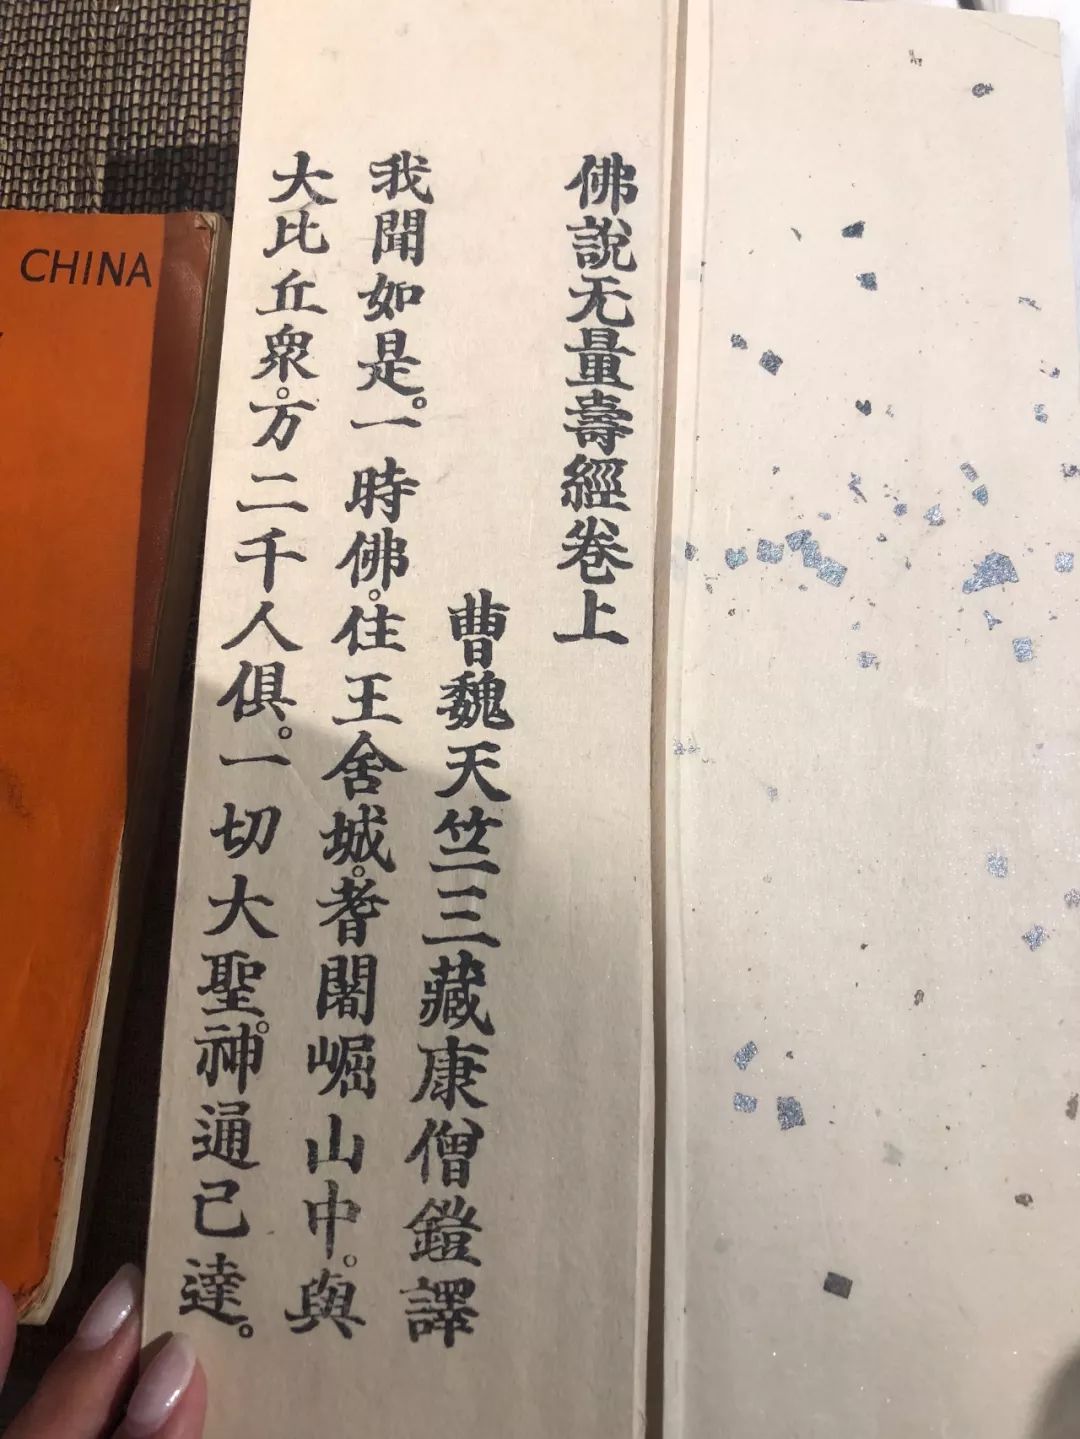 佛說无量壽經卷上
曹魏天竺三藏康僧鎧譯
我聞如是。一時佛。住王舍城。耆闍崛山中。與
大比丘衆。万二千人俱。一切大聖。神通已達。
CHINA